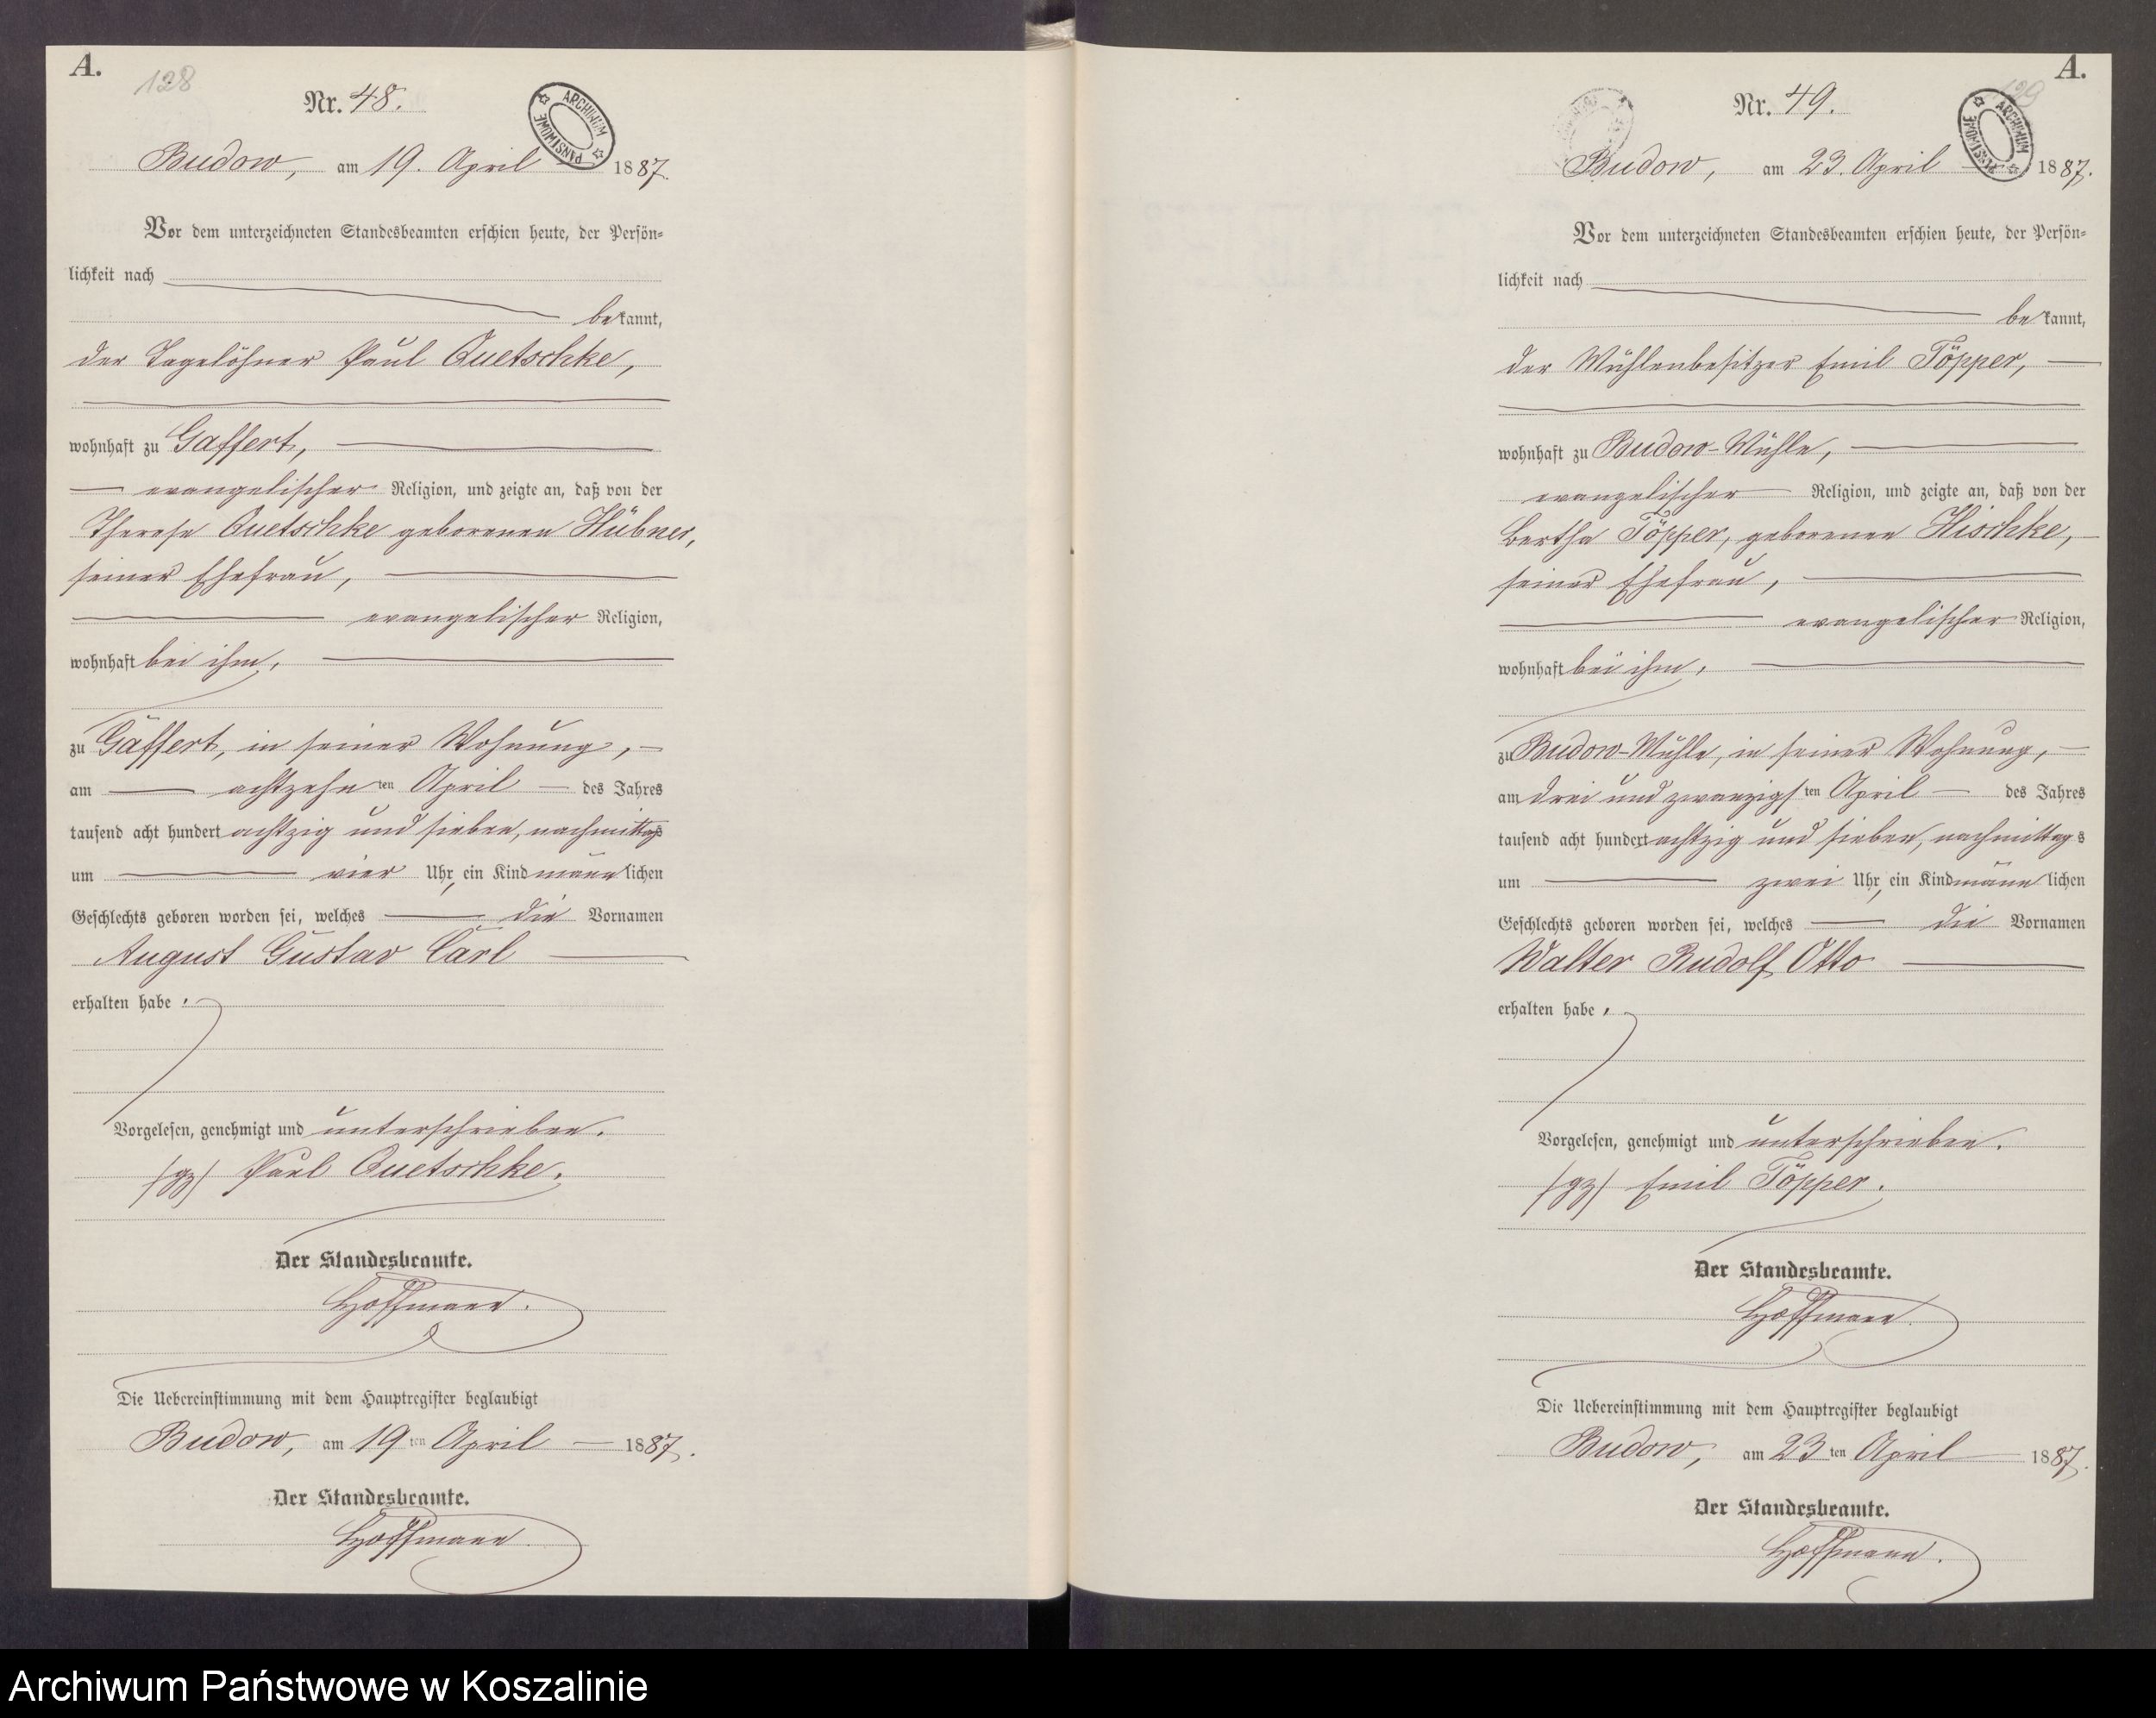 A.
128
Nr. 48.
ARCHIWUM PAŃSTWOWE
Budow, am 19. April 1887.
Vor dem unterzeichneten Standesbeamten erschien heute, der Persön-
lichkeit nach
bekannt,
der Tagelöhner Paul Quetschke,
wohnhaft zu Gaffert,
evangelischer Religion, und zeigte an, daß von der
Therese Quetschke geborenen Hübner,
seiner Ehefrau,
evangelischer Religion,
wohnhaft bei ihm,
zu Gaffert, in seiner Wohnung,
am achtzehnten April des Jahres
tausend acht hundert achtzig und sieben, nachmittags
um vier Uhr, ein Kind männlichen
Geschlechts geboren worden sei, welches die Vornamen
August Gustav Carl
erhalten habe.
Vorgelesen, genehmigt und unterschrieben.
(gz) Paul Quetschke.
Der Standesbeamte.
Hoffmann.
Die Uebereinstimmung mit dem Hauptregister beglaubigt
Budow, am 19ten April 1887.
Der Standesbeamte.
Hoffmann.
A.
129
Nr. 49.
ARCHIWUM PAŃSTWOWE
Budow, am 23. April 1887.
Vor dem unterzeichneten Standesbeamten erschien heute, der Persön-
lichkeit nach
bekannt,
der Mühlenbesitzer Emil Töpper,
wohnhaft zu Budow-Mühle,
evangelischer Religion, und zeigte an, daß von der
Bertha Töpper, geborenen Hischke,
seiner Ehefrau,
evangelischer Religion,
wohnhaft bei ihm,
zu Budow-Mühle, in seiner Wohnung,
am drei und zwanzigsten April des Jahres
tausend acht hundert achtzig und sieben, nachmittags
um zwei Uhr, ein Kind männlichen
Geschlechts geboren worden sei, welches die Vornamen
Walter Rudolf Otto
erhalten habe.
Vorgelesen, genehmigt und unterschrieben.
(gz) Emil Töpper.
Der Standesbeamte.
Hoffmann.
Die Uebereinstimmung mit dem Hauptregister beglaubigt
Budow, am 23ten April 1887.
Der Standesbeamte.
Hoffmann.
Archiwum Państwowe w Koszalinie